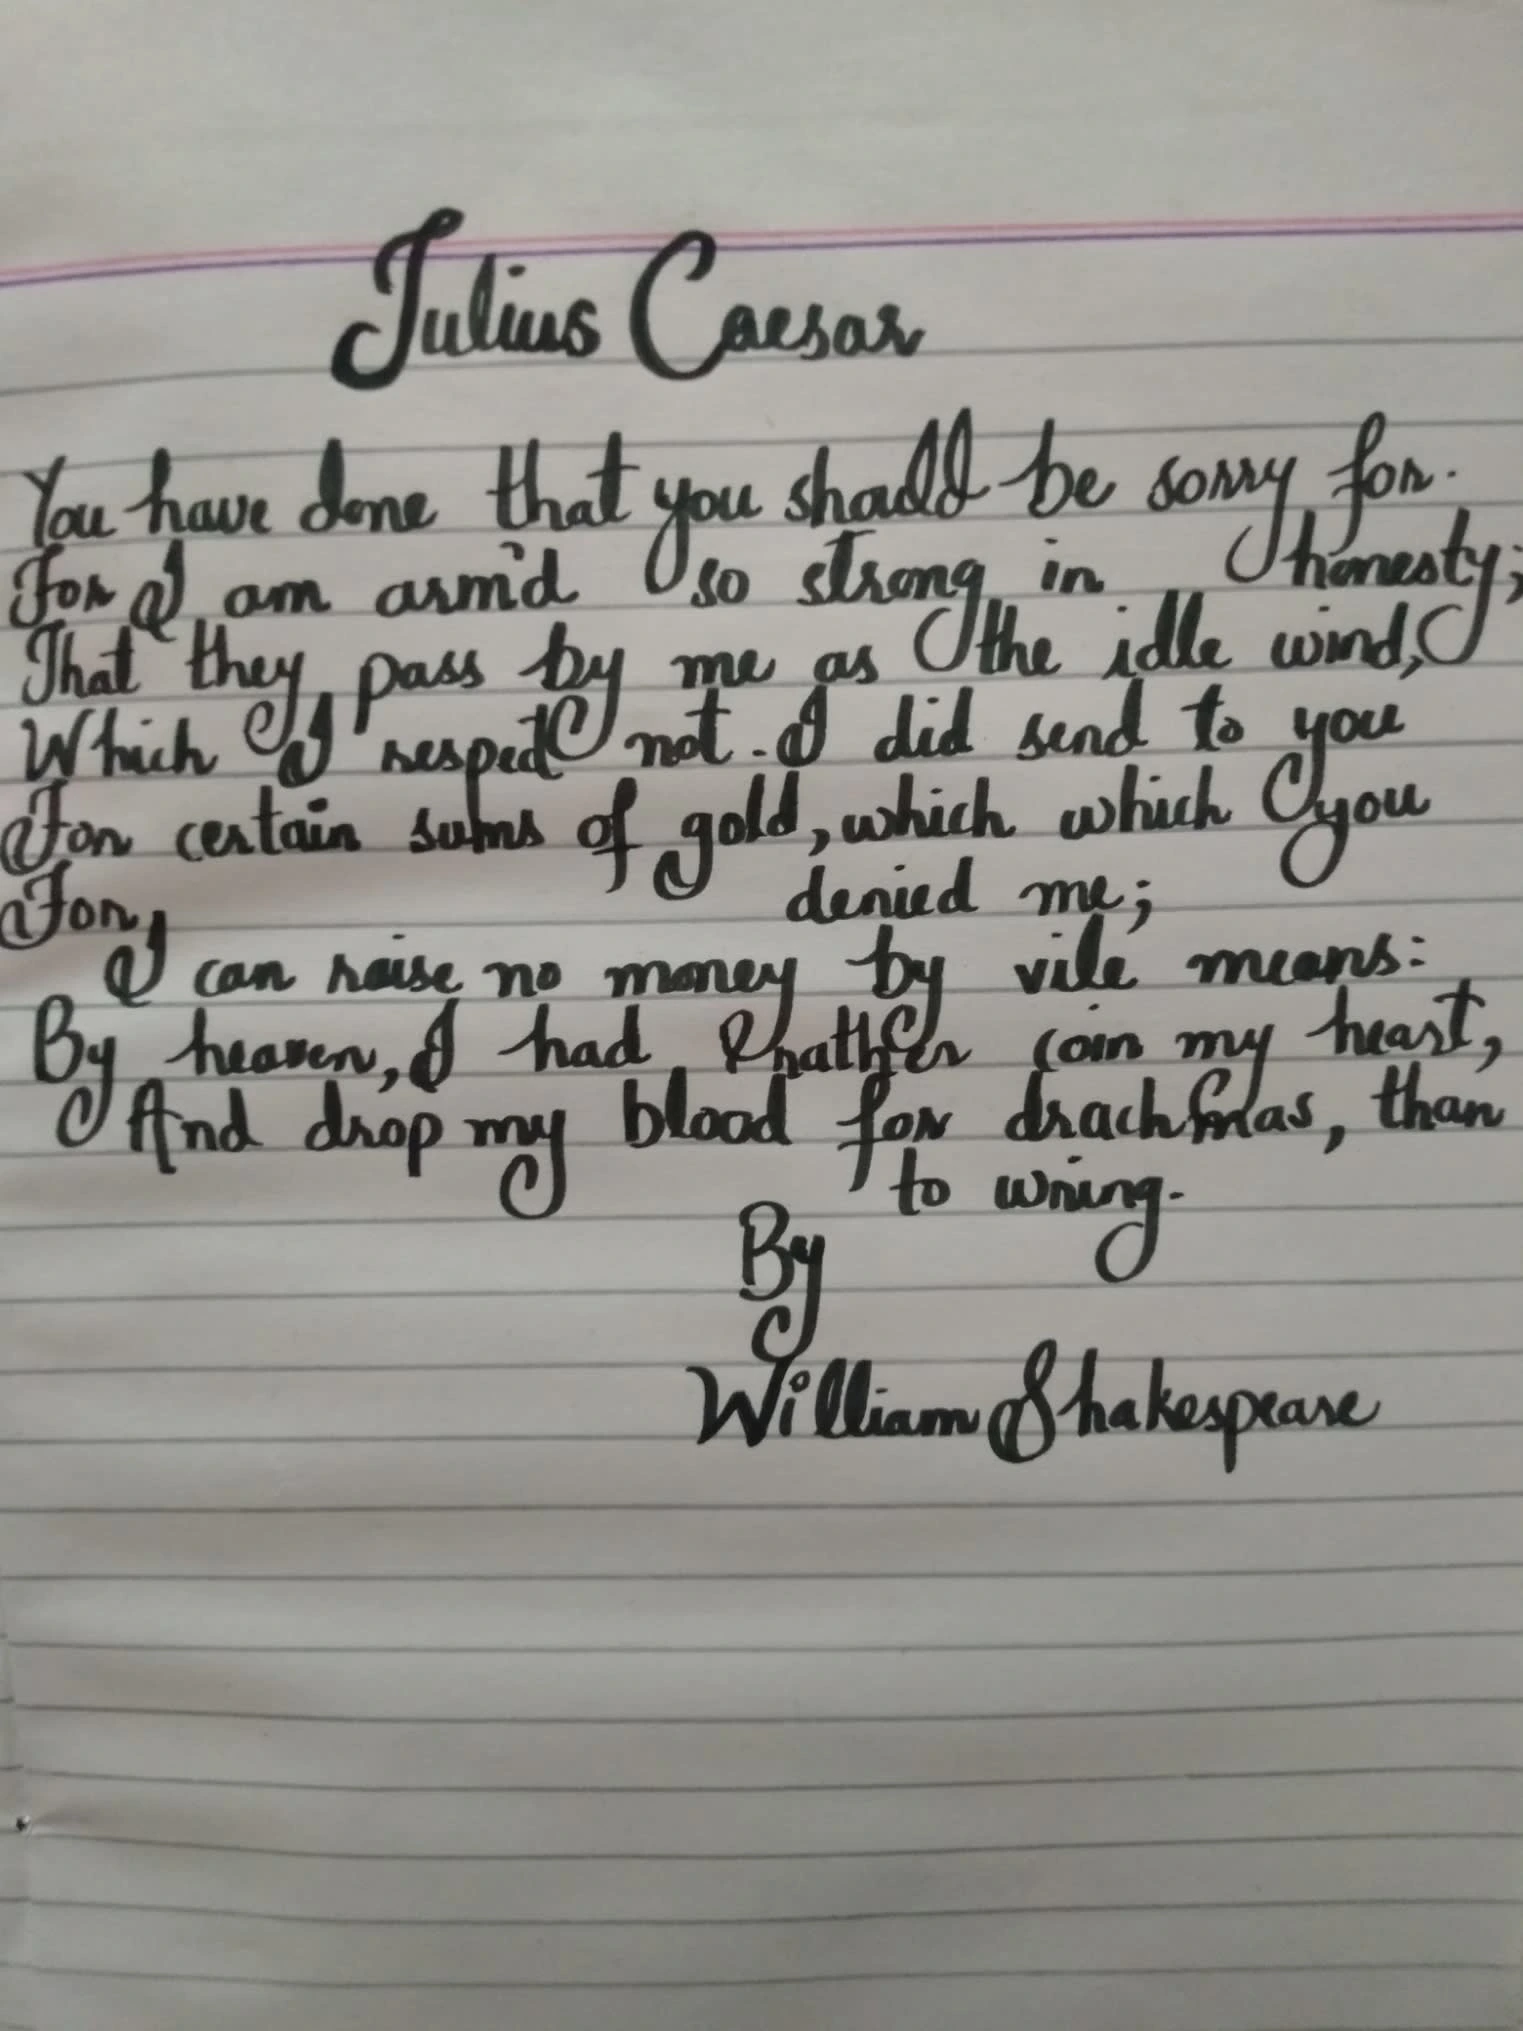 Julius Caesar
You have done that you should be sorry for.
For I am arm'd so strong in honesty;
That they pass by me as the idle wind,
Which I respect not. I did send to you
For certain sums of gold, which which you
For, denied me;
I can raise no money by vile means:
By heaven, I had rather coin my heart,
And drop my blood for drachmas, than
to wring.
By
William Shakespeare